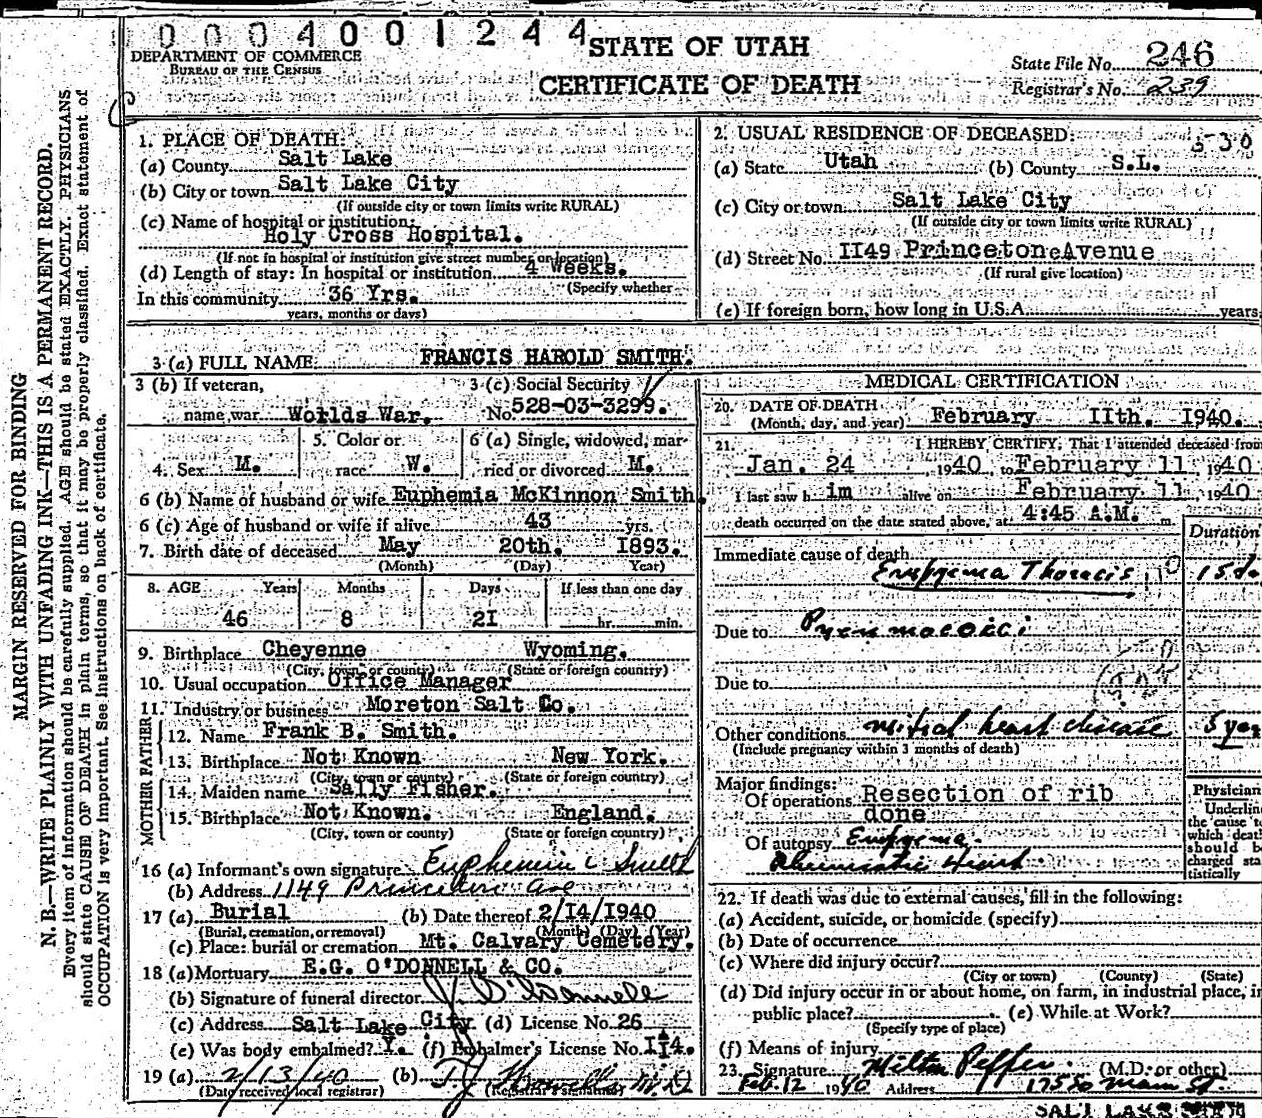 0004001244
DEPARTMENT OF COMMERCE
BUREAU OF THE CENSUS
STATE OF UTAH
CERTIFICATE OF DEATH
State File No. 246
Registrar's No. 239
MARGIN RESERVED FOR BINDING
N. B.—WRITE PLAINLY WITH UNFADING INK—THIS IS A PERMANENT RECORD.
Every item of information should be carefully supplied. AGE should be stated EXACTLY. PHYSICIANS
should state CAUSE OF DEATH in plain terms, so that it may be properly classified. Exact statement of
OCCUPATION is very important. See instructions on back of certificate.
1. PLACE OF DEATH:
(a) County Salt Lake
(b) City or town Salt Lake City
(If outside city or town limits write RURAL)
(c) Name of hospital or institution:
Holy Cross Hospital.
(If not in hospital or institution give street number or location)
(d) Length of stay: In hospital or institution 4 Weeks.
(Specify whether
In this community 36 Yrs.
years, months or days)
2. USUAL RESIDENCE OF DECEASED: 530
(a) State Utah (b) County S.L.
(c) City or town Salt Lake City
(If outside city or town limits write RURAL)
(d) Street No. II49 Princeton Avenue
(If rural give location)
(e) If foreign born, how long in U.S.A. years
3 (a) FULL NAME FRANCIS HAROLD SMITH.
3 (b) If veteran,
name war Worlds War.
3 (c) Social Security
No. 528-03-3299.
4. Sex M.
5. Color or
race W.
6 (a) Single, widowed, mar-
ried or divorced M.
6 (b) Name of husband or wife Euphemia McKinnon Smith.
6 (c) Age of husband or wife if alive 43 yrs.
7. Birth date of deceased May 20th. I893.
(Month) (Day) Year)
8. AGE Years Months Days If less than one day
46 8 2I hr. min.
9. Birthplace Cheyenne Wyoming.
(City, town, or county) (State or foreign country)
10. Usual occupation Office Manager
11. Industry or business Moreton Salt Co.
FATHER
12. Name Frank B. Smith.
13. Birthplace Not Known New York.
(City, town or county) (State or foreign country)
MOTHER
14. Maiden name Sally Fisher.
15. Birthplace Not Known. England.
(City, town or county) (State or foreign country)
16 (a) Informant's own signature Euphemia C Smith
(b) Address 1149 Princeton Ave
17 (a) Burial (b) Date thereof 2/I4/I940
(Burial, cremation, or removal) (Month) (Day) (Year)
(c) Place: burial or cremation Mt. Calvary Cemetery.
18 (a) Mortuary E.G. O'DONNELL & CO.
(b) Signature of funeral director O'Donnell
(c) Address Salt Lake City (d) License No. 26
(e) Was body embalmed? Y. (f) Embalmer's License No. II4.
19 (a) 2/13/40 (b) M.D.
(Date received local registrar) (Registrar's signature)
MEDICAL CERTIFICATION
20. DATE OF DEATH
(Month, day, and year) February IIth. I940.
21. I HEREBY CERTIFY, That I attended deceased from
Jan. 24 1940 to February 11 1940
I last saw him alive on February 11, 1940
death occurred on the date stated above, at 4:45 A.M. m.
Duration
Immediate cause of death
Empyema Thoracis 15 d.
Due to Pneumococci
Due to
Other conditions mitral heart disease 5 yea
(Include pregnancy within 3 months of death)
Major findings:
Of operations Resection of rib
done
Of autopsy Empyema.
Rheumatic Heart
Physician
Underline
the cause to
which death
should be
charged sta
tistically
22. If death was due to external causes, fill in the following:
(a) Accident, suicide, or homicide (specify)
(b) Date of occurrence
(c) Where did injury occur?
(City or town) (County) (State)
(d) Did injury occur in or about home, on farm, in industrial place, in
public place? (e) While at Work?
(Specify type of place)
(f) Means of injury
23. Signature Milton Pepper (M.D. or other)
Feb. 12 1940 Address 175 So main St.
SALT LAKE